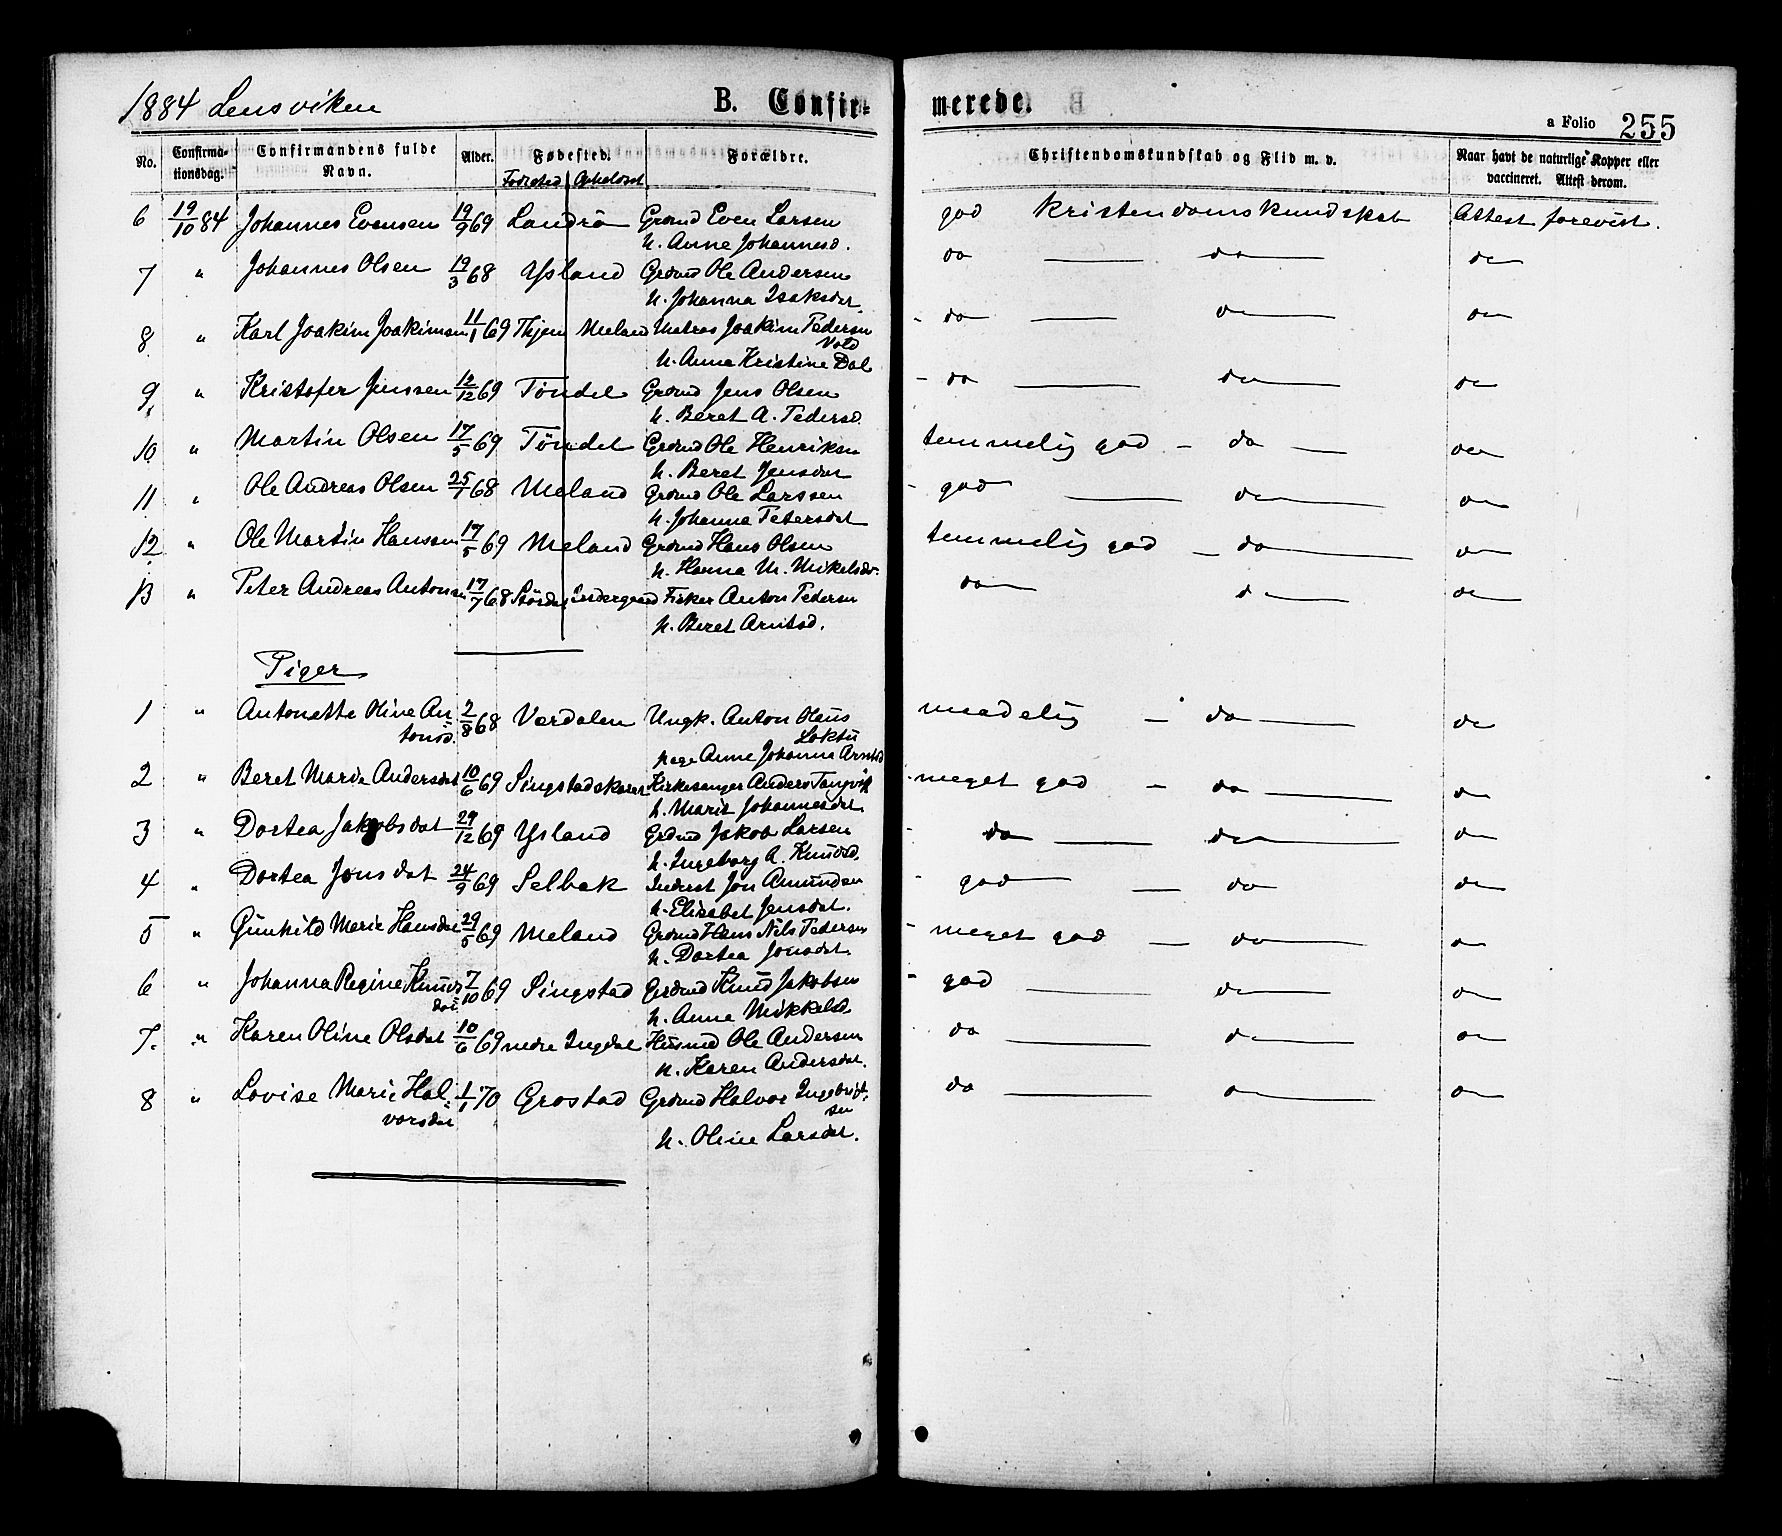 1884 Lensviken B. Confir- merede. a Folio 255
No. Confirmationsdag. Confirmandens fulde Navn. Alder. Fødested. Forældre. Christendomskundskab og Flid m. v. Naar havt de naturlige Kopper eller vaccineret. Attest derom.
Fødested Opholdsst.
6 19/10 84 Johannes Evensen 19/9 69 Landrö Grdmd Even Larsen god Kristendomskundskab Attest forevist.
h. Anne Johannesd.
7 " Johannes Olsen 19/3 68 Ysland Grdmd Ole Andersen do — do — do
h. Johanna Isaksdat.
8 " Karl Joakim Joakimsen 11/1 69 Thjem Meland Matros Joakim Pedersen - do — do — do
Vold
h. Anna Kristine Dal
9 " Kristofer Jenssen 12/12 69 Töndel Grdmd Jens Olsen - do — do — do
h. Beret A. Pedersd.
10 " Martin Olsen 17/5 69 Töndel Grdmd Ole Henriksen temmelig god - do — do
h. Beret Jensdat
11 " Ole Andreas Olsen 25/1 68 Meland Grdmd Ole Larssen - god — do — do
h. Johanna Petersdat
12 " Ole Martin Hansen 17/5 69 Meland Grdmd Hans Olsen temmelig god - do — do
h. Hanna M. Mikelsdr.
13 " Peter Andreas Antonsen 17/7 68 Indergaard Fisker Anton Pedersen do — do — do
h. Beret Arntsd.
Piger
1 " Antonette Oline An- 2/8 68 Værdalen Ungk. Anton Olaus maadelig - do — do
tonsd. Loktu
pige Anne Johanna Arntsd
2 " Beret Maria Andersdat 10/6 69 Singstadskaret Kirkesanger Anders Tangvik - meget god - do — do
h. Marit Johannesdat.
3 " Dortea Jakobsdat 29/12 69 Ysland Grdmd Jakob Larsen - do — do — do
h. Ingeborg A. Knudsd.
4 " Dortea Jonsdat 24/9 69 Selbak Inderst Jon Amundsen - god — do do
h. Elisabet Jensdat.
5 " Gunhild Marie Hansdat 29/5 69 Meland Grdmd Hans Nils Pedersen - meget god — do — do
h. Dortea Jonsdat.
6 " Johanna Regine Knuds- 7/10 69 Singstad Grdmd Knud Jakobsen - god — do — do
dat h. Anne Mikkelsd.
7. " Karen Oline Olsdat 10/6 69 nedre Ingdal Husmd Ole Andersen do — do — do
h. Karen Andersdat.
8 " Lovise Marie Hal- 1/1 70 Grostad Grdmd Halvor Ingebrigt- do — do — do
vorsdat sen
h. Oline Larsdat.